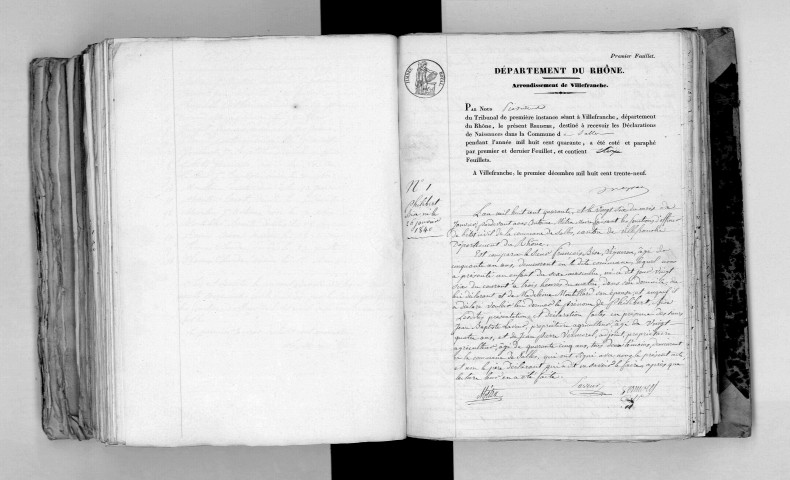 Premier Feuillet.
DÉPARTEMENT DU RHÔNE.
Arrondissement de Villefranche.
PAR NOUS
du Tribunal de première instance séant à Villefranche, département
du Rhône, le présent REGISTRE, destiné à recevoir les Déclarations
de Naissances dans la Commune d
pendant l'année mil huit cent quarante, a été coté et paraphé
par premier et dernier Feuillet, et contient
Feuillets.
A Villefranche, le premier décembre mil huit cent trente-neuf.
N° 1
Philibert
né le
26 janvier
1840
L'an mil huit cent quarante, et le vingt six du mois de
janvier, pardevant nous Antoine Métra, maire faisant les fonctions d'officier
de l'état civil de la commune de Salles, canton de villefranche
Département du Rhône.
Est comparu le Sieur François vigneron, âgé de
cinquante un ans, demeurant en la dite commune, lequel nous
a présenté un enfant du sexe masculin, né ce jour vingt
six du courant à trois heures du matin, dans son domicile, de
lui déclarant et de Madeleine son épouse, et auquel il
a déclaré vouloir lui donner le prénom de Philibert
Lesdites présentation et déclaration faites en présence des sieurs
Jean Baptiste propriétaire agriculteur, âgé de vingt
quatre ans, et de Jean Pierre propriétaire
agriculteur, âgé de quarante cinq ans, tous deux témoins, demeurant
en la commune de Salles, qui ont signé avec nous le présent acte,
et non le père déclarant qui a dit ne savoir le faire, après que
lecture leur en a été faite.
Métra